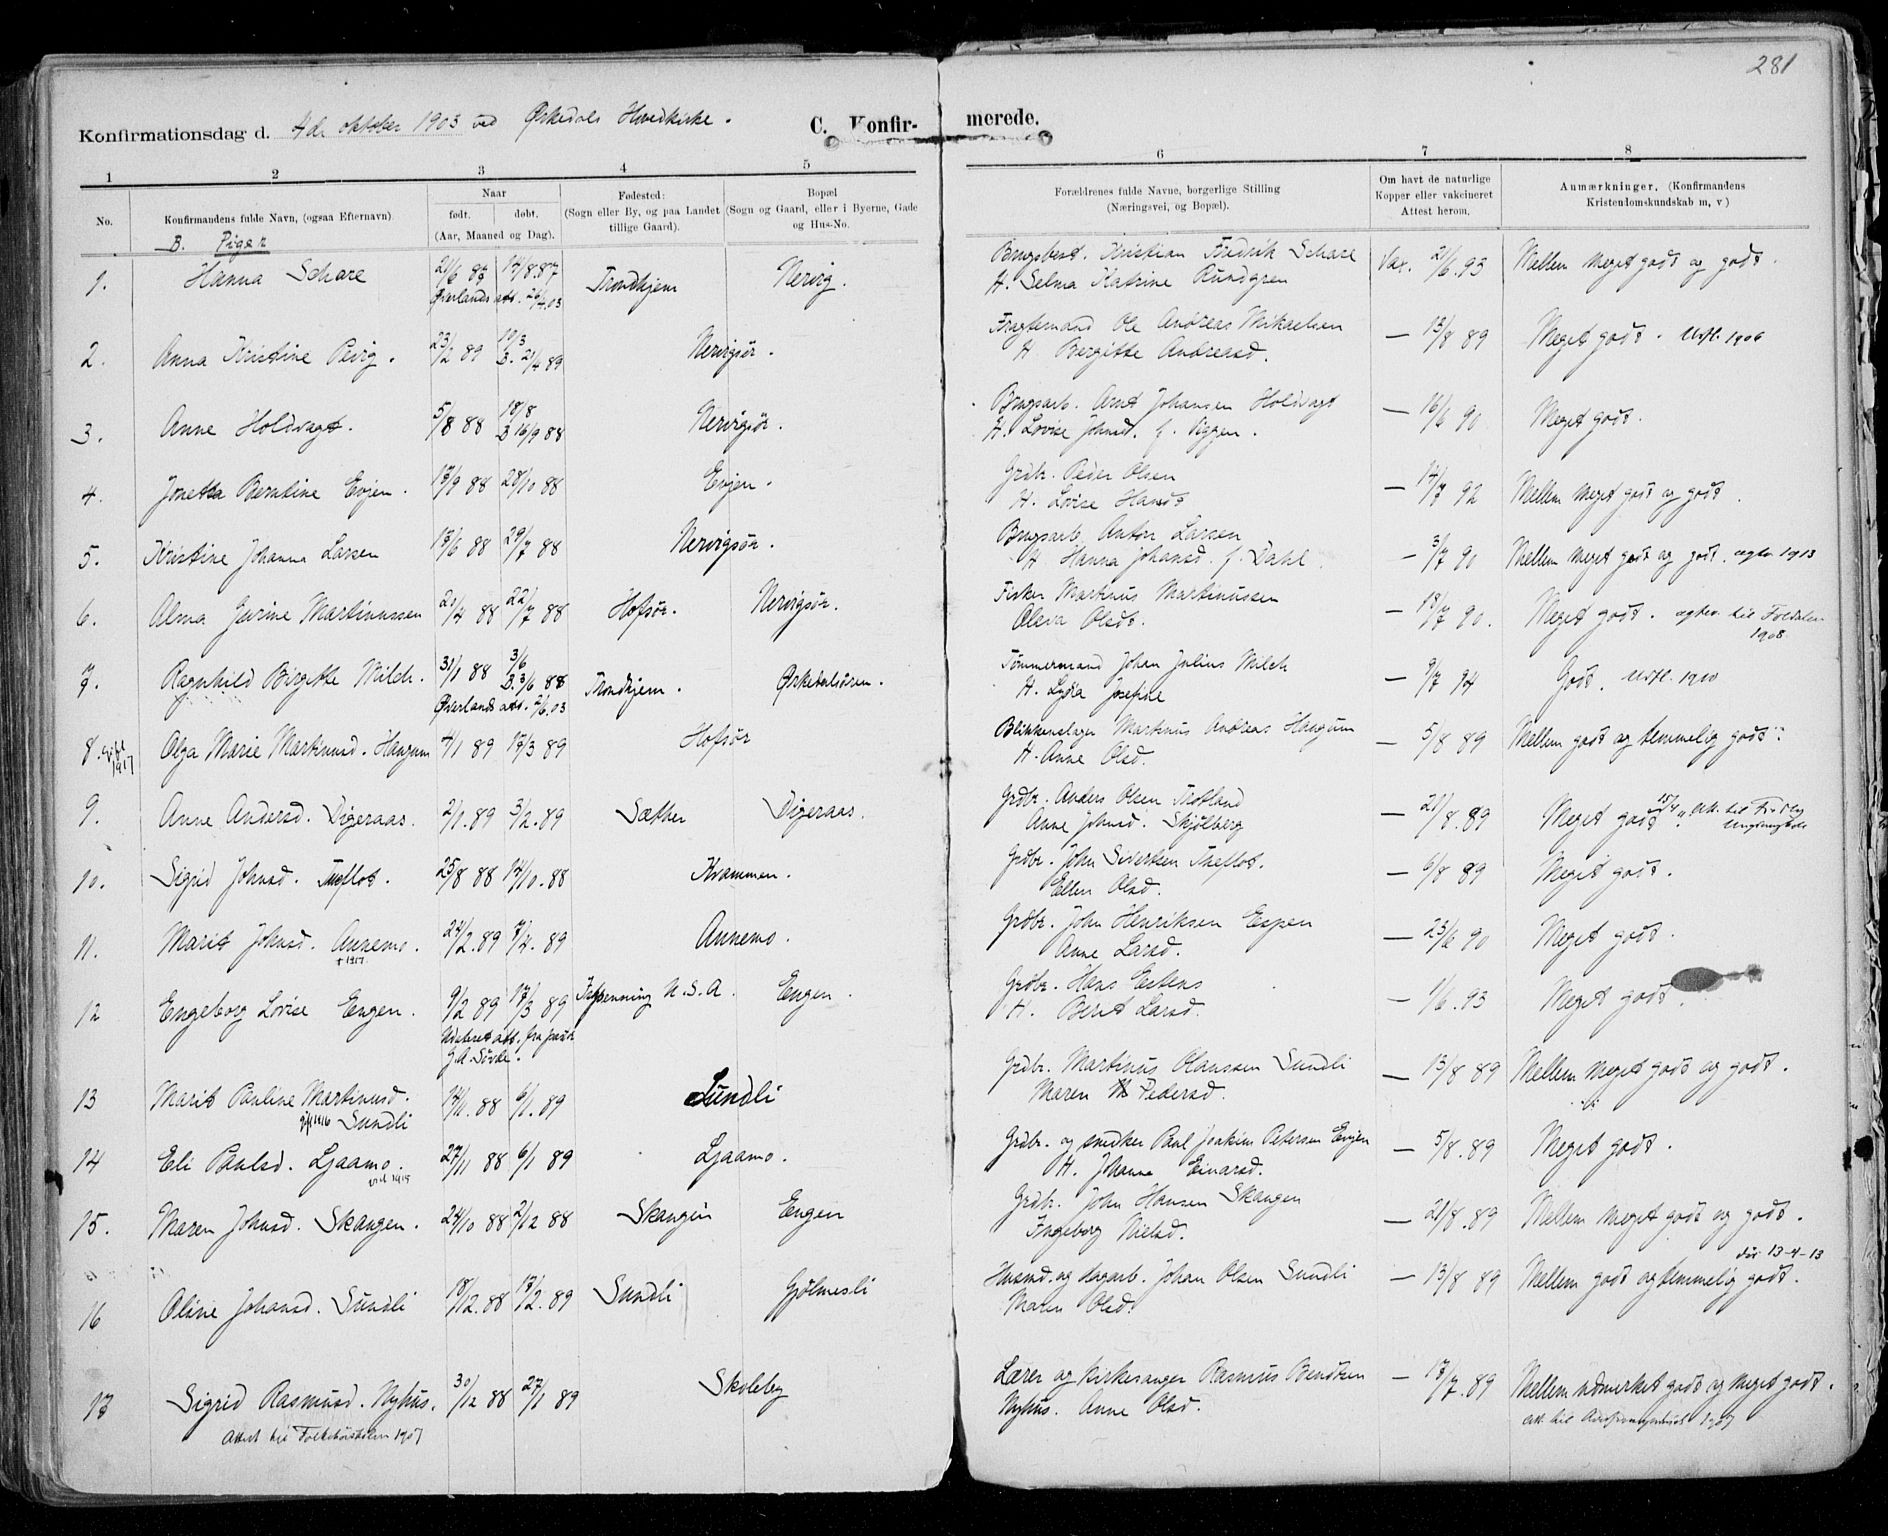 281
Konfirmationsdag d. 4de oktober 1903 ved Ørkedals Hovedkirke.
C. Konfirmerede.
1 2 3 4 5 6 7 8
No.
Konfirmandens fulde Navn, (ogsaa Efternavn)
Naar
født. døbt.
(Aar, Maaned og Dag).
Fødested:
(Sogn eller By, og paa Landet
tillige Gaard).
Bopæl
(Sogn og Gaard, eller i Byerne, Gade
og Hus-No.
Forældrenes fulde Navne, borgerlige Stilling
(Næringsvei, og Bopæl).
Om havt de naturlige
Kopper eller vakcineret
Attest herom.
Anmærkninger, (Konfirmandens
Kristendomskundskab m, v)
B. Piger
1. Hanna Schare 21/6 87 14/8.87 Trondhjem Nervig. Brugsbest. Kristian Fredrik Schare Vax. 2/6.93 Mellem meget godt og godt.
att. 26/4.03 H. Selma Katrine Rundgren
2. Anna Kristine Pevig. 23/2 89 10/3 Nervigsør. Fragtemand Ole Andreas Mikaelsen — 13/8 89 Meget godt. Utfl. 1906
B. 21/4 89 H Bergitte Andreasd.
3. Anne Holdvagt. 5/8 88 18/8 Nervigsør. Brugsarb. Arnt Johansen Holdvagt — 16/6 90 Meget godt.
B 16/9 88 H. Lovise Johnsd. f. Viggen.
4. Jonetta Berntine Evjen. 17/9 88 28/10 88 Evjen. Grdbr. Peder Olsen — 14/7 92 Mellem meget godt og godt.
H. Lovise Hansd
5. Kristine Johanna Larsen 13/6 88 29/7 88 Nervigsør. Brugsarb. Anton Larsen — 3/7 90 Mellem meget godt og godt. 1913
H Hanna Johansd. f. Dahl.
6. Alma Gurine Martinussen 21/4 88 22/7 88 Hofsør. Nervigsør. Fisker Martinus Martinussen — 18/7 90. Meget godt. til Foldalen
Oleva Olsdt. 1908
7. Ragnhild Birgitte Milch. 31/1 88 3/6 Trondhjem. Ørkedalsøren. Tømmermand Johan Julius Milch — 9/7 94 Godt. Utfl. 1910
B. 3/6 88
att. 2/6.03 H. Lydia Josefine
8. gift 1917 Olga Marie Martinusd. Haugum 4/1 89 17/3 89 Hofsør Blikkenslager Martinus Andreas Haugum — 5/8 89 Mellem godt og temmelig godt.
H. Anne Olsd.
9. Anne Andersd. Digeraas. 2/1.89 3/2.89 Sæther Digeraas. Grdbr. Anders Olsen — 21/8.89 Meget godt. att. til
Anne Johnsd. Skjølberg
10. Sigrid Johnsd. 25/8 88 14/10.88 Kvammen. Grdbr. John Sivertsen — 6/8 89 Meget godt.
Ellen Olsd.
11. Marit Johnsd. Annemo. 24/2.89 7/4.89 Annemo. Grdbr. John Henriksen Espen — 23/6 90 Meget godt.
+ 1917. Anne Larsd.
12 Engeborg Lovise Engen. 9/2 89 17/3 89 N.S.A. Engen. Grdbr. Hans Estens — 1/6.93 Meget godt.
att. fra H. Berit Larsd.
13 Marit Pauline Martinusd. 14/11.88 6/1.89 Sundli Grdbr. Martinus Olaussen Sundli — 13/8 89 Mellem meget godt og godt.
gift 1916 Sundli Maren Pedersd.
14 Eli Paulsd. Ljaamo. 27/11 88 6/1 89 Ljaamo. Grdbr. og smeker Paul Joakim Petersen Evjen — 5/8.89 Meget godt.
H. Johanna Einarsd.
15. Maren Johnsd. Skangen. 24/10 88 2/12 88 Skangen Engen Grdbr. John Hansen Skangen — 21/8.89 Mellem meget godt og godt.
Ingeborg Nielsd.
16 Oline Johansd. Sundli 18/12.88 17/2.89 Sundli Gjølmesli Husmd. og dagarb. Johan Olsen Sundli — 13/8 89 Mellem godt og temmelig godt.
død 13-4-13
Maren Olsd.
17 Sigrid Rasmusd. Nyhus. 30/12 88 27/1 89 Skoleby Lærer og kirkesanger Rasmus Bendtsen — 17/7.89 Mellem udmerket godt og meget godt.
Attest til Folkehøiskolen 1907 Nyhus. Anne Olsd. att. til 1907